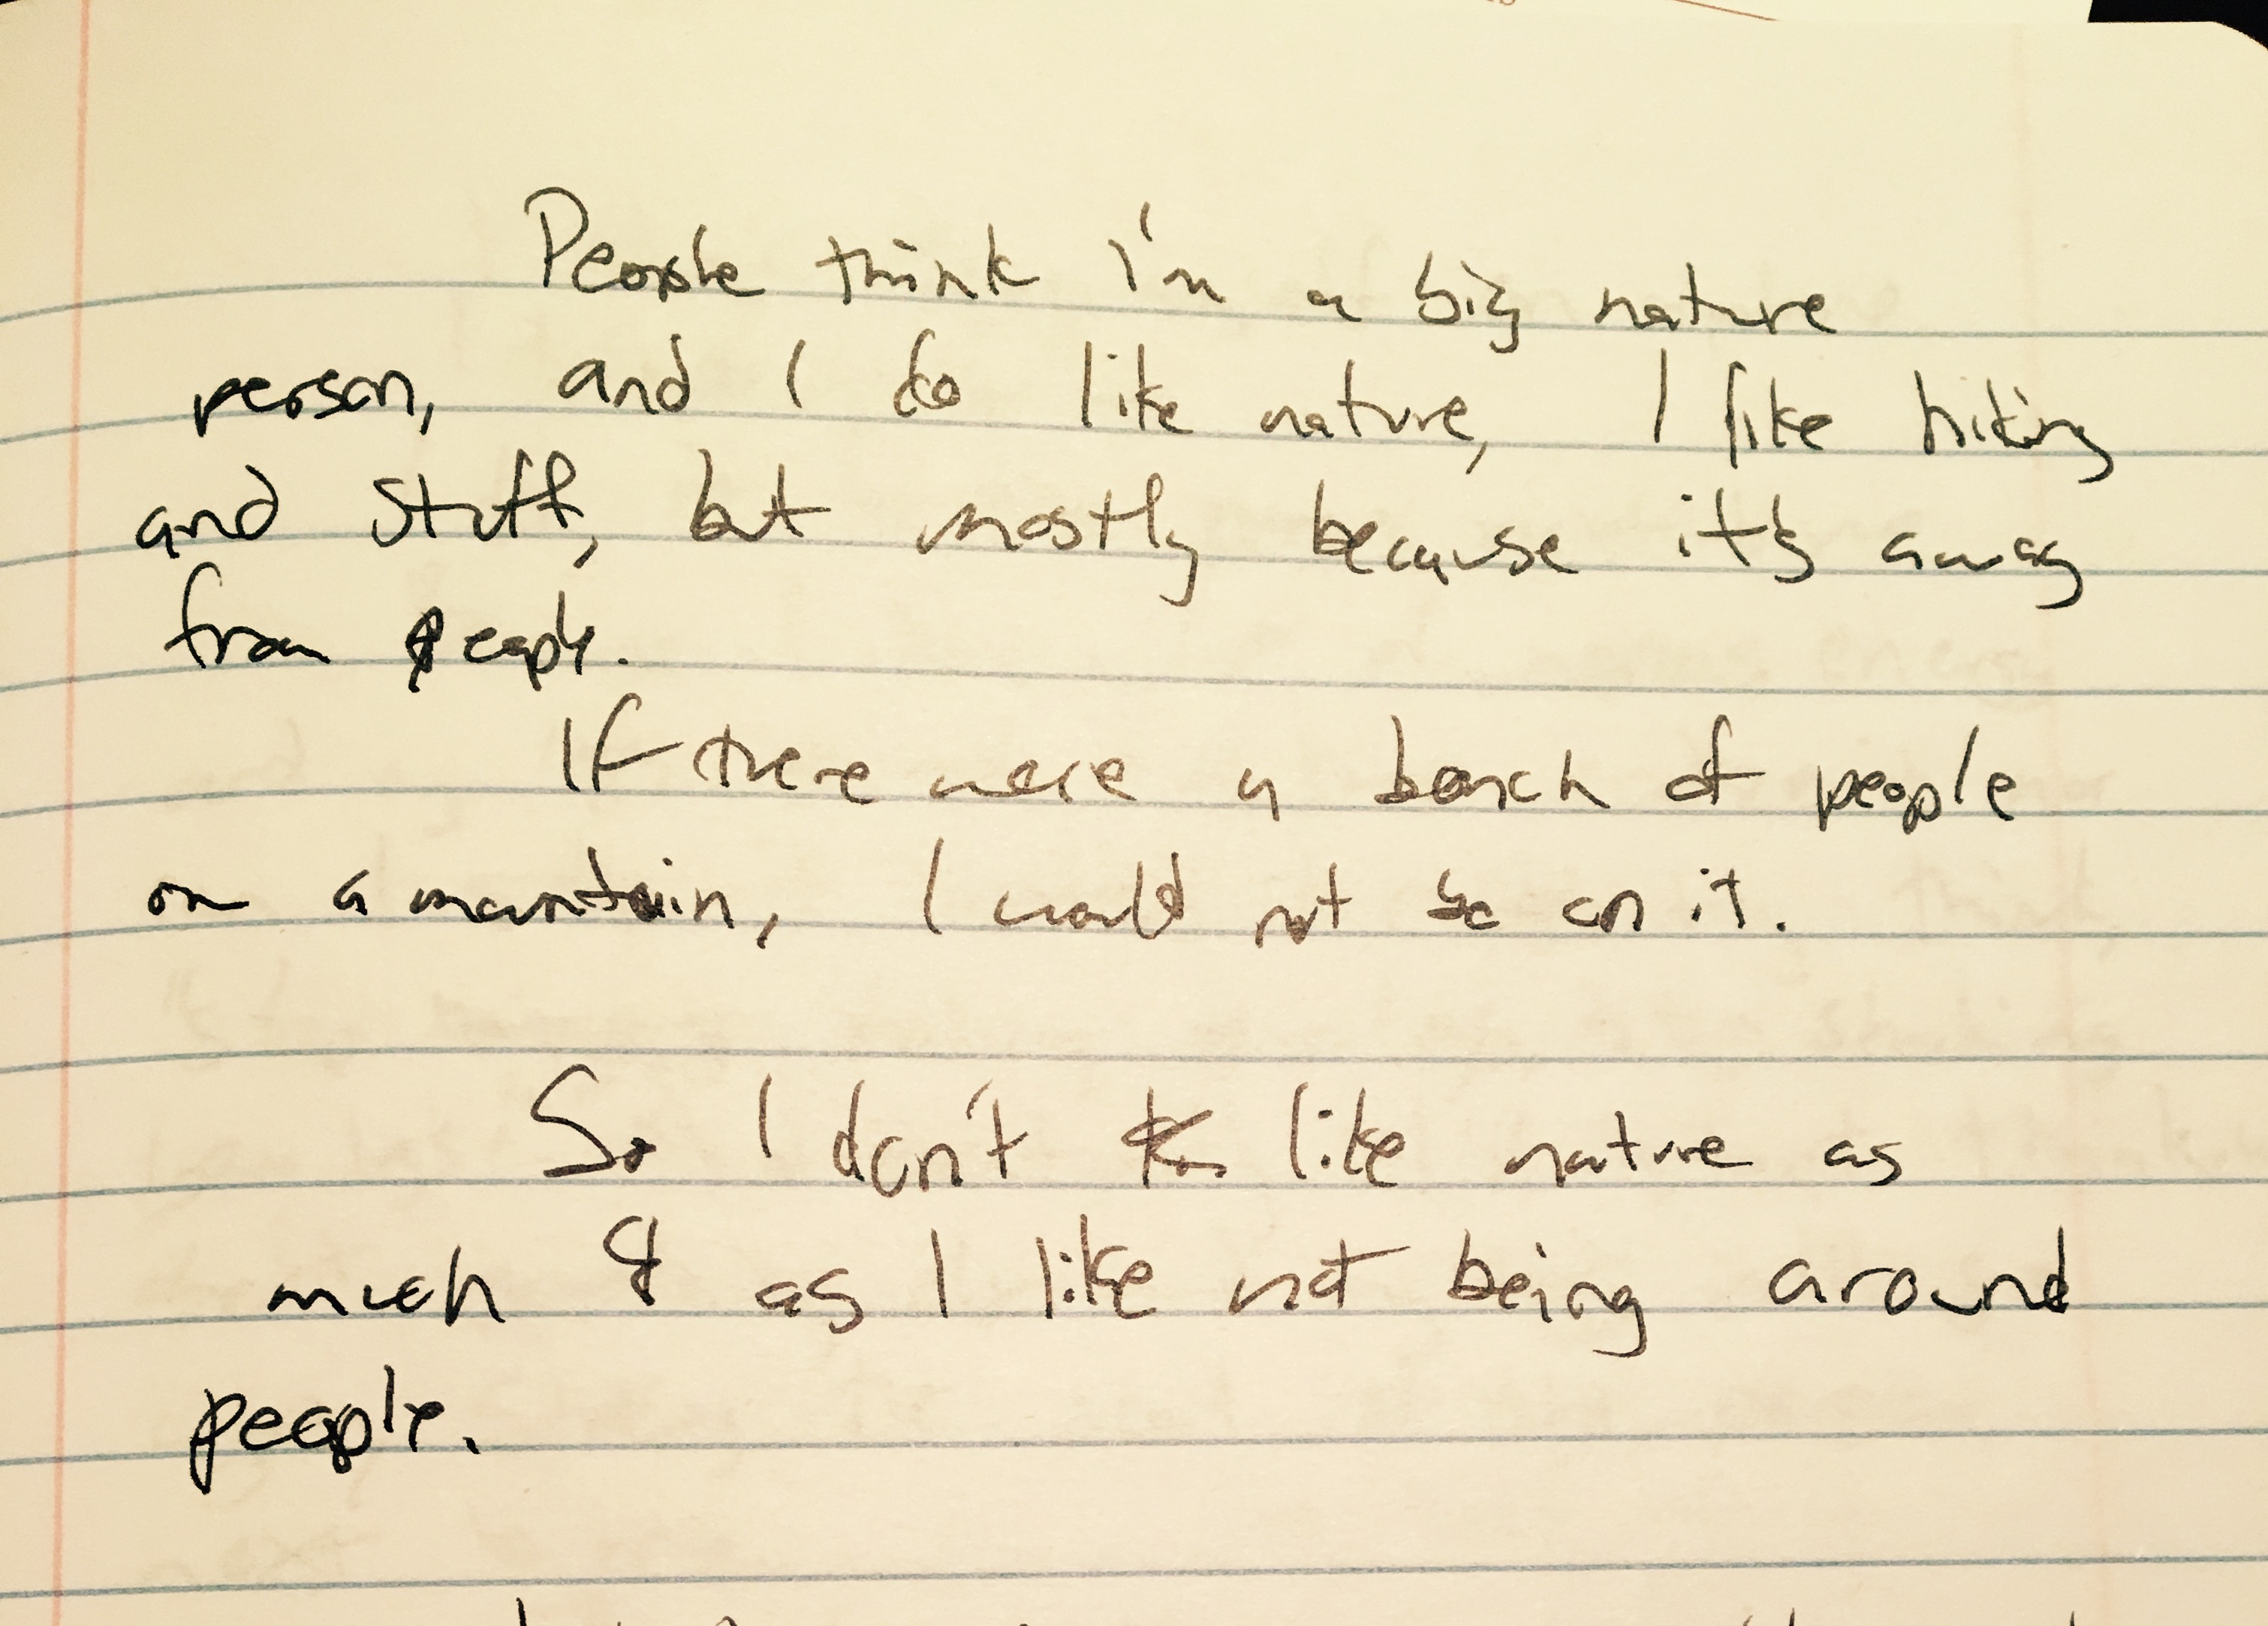 People think I'm a big nature
person, and I do like nature, I like hiking
and stuff, but mostly because it's away
from people.
If there were a bunch of people
on a mountain, I would not be on it.
So I don't like nature as
much as I like not being around
people.